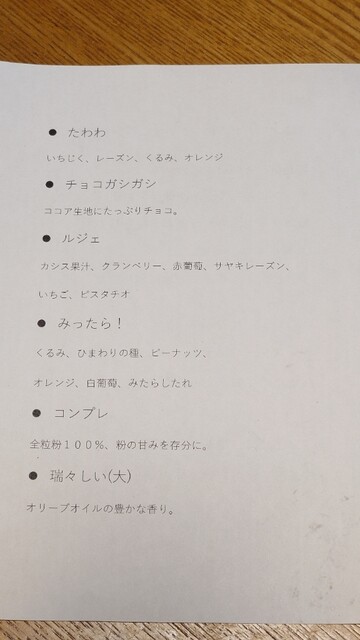 ● たわわ
いちじく、レーズン、くるみ、オレンジ
● チョコガシガシ
ココア生地にたっぷりチョコ。
● ルジェ
カシス果汁、クランベリー、赤葡萄、サヤキレーズン、
いちご、ピスタチオ
● みったら！
くるみ、ひまわりの種、ピーナッツ、
オレンジ、白葡萄、みたらしたれ
● コンプレ
全粒粉１００％、粉の甘みを存分に。
● 瑞々しい(大)
オリーブオイルの豊かな香り。